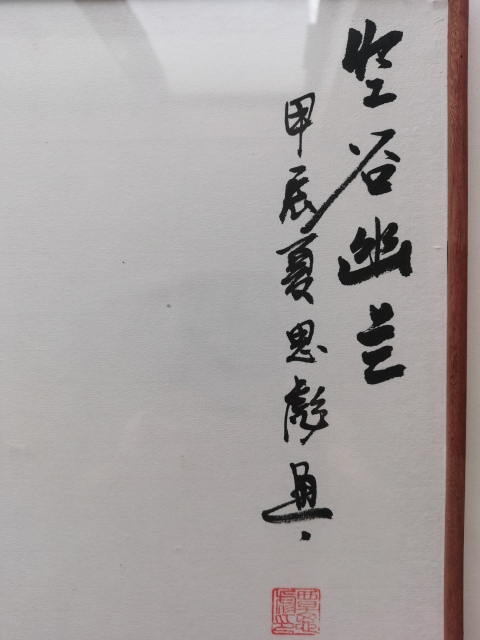 空谷幽兰
甲辰夏思彪画